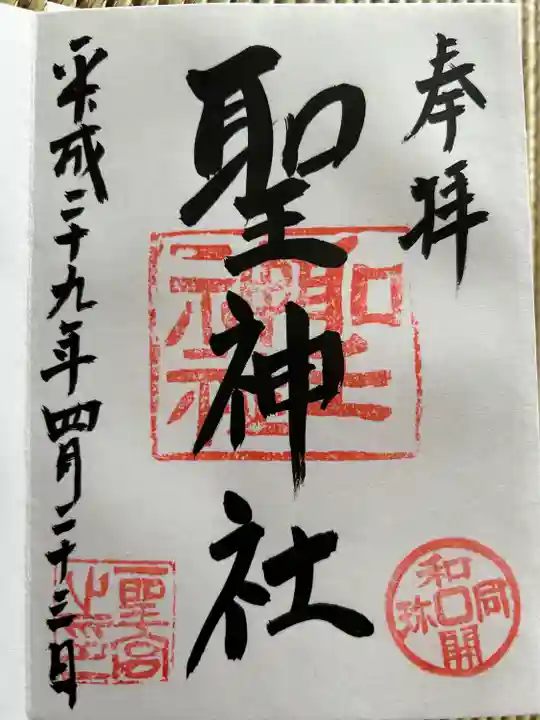 奉拝
聖神社
平成二十九年四月二十三日
聖神社
和同開珎